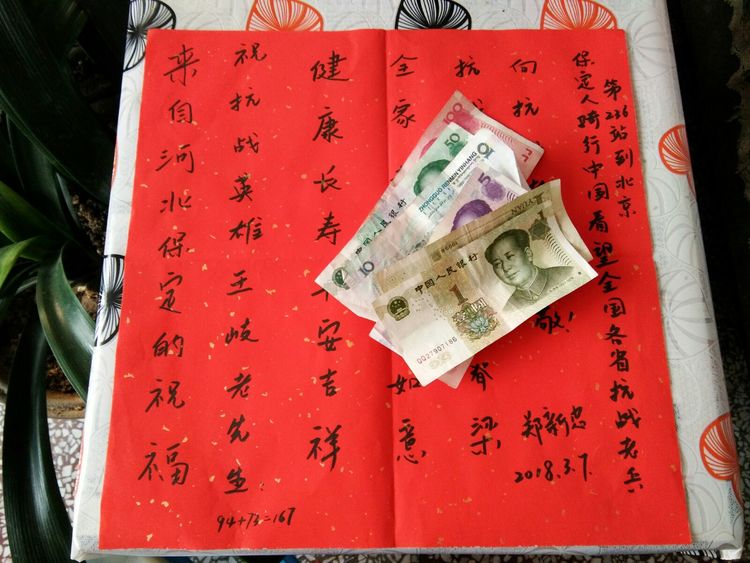 来自河北保定的祝福
祝抗战英雄王岐老先生:
94+73=167
健康长寿平安吉祥
全家 如意
抗 脊梁
向抗 敬!
郑新忠
2018.3.7.
保定人骑行中国看望全国各省抗战老兵
第236站到北京
100
50
中国人民银行
10
ZHONGGUO RENMIN YINHANG
10
5
YUAN
中国人民银行
1
1
DQ27907186